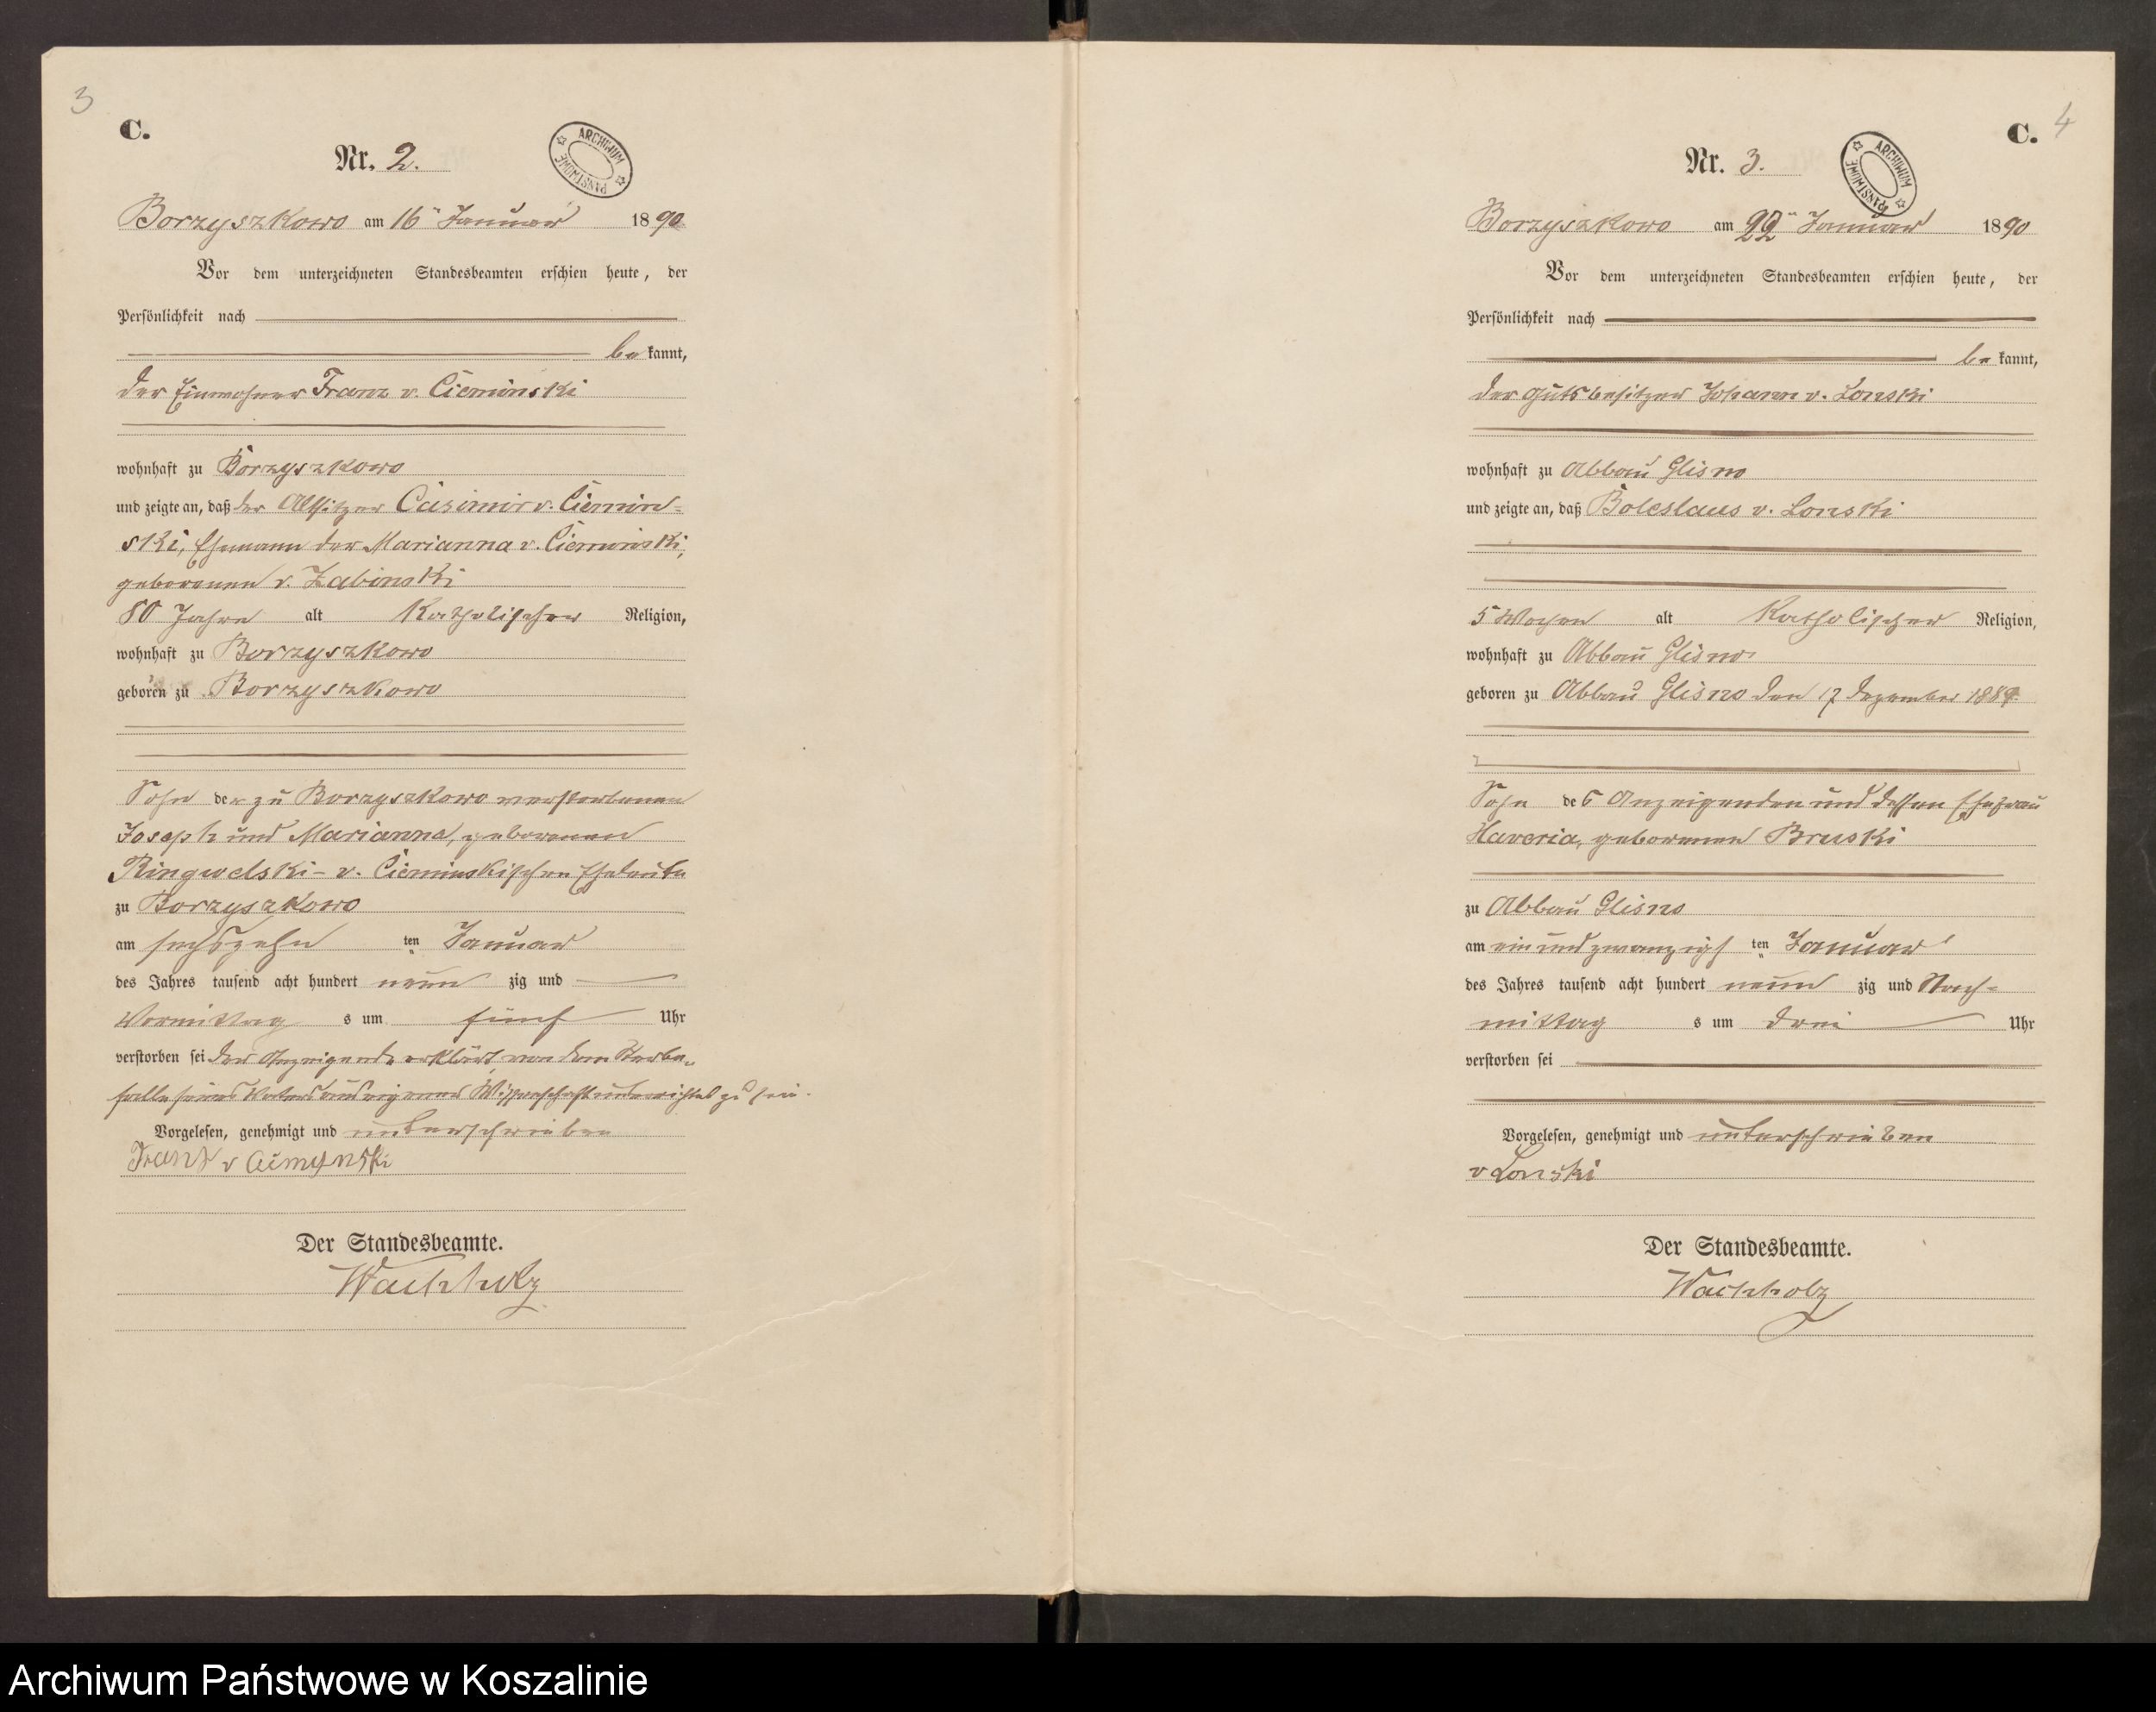 3
C.
Nr. 2.
ARCHIWUM PAŃSTWOWE
Borzyszkowo am 16ten Januar 1890
Vor dem unterzeichneten Standesbeamten erschien heute, der
Persönlichkeit nach
be kannt,
der Einwohner Franz v. Cieminski
wohnhaft zu Borzyszkowo
und zeigte an, daß der Altsitzer Casimir v. Ciemin=
ski, Ehemann der Marianna v. Cieminski,
geborenen v. Zabinski
80 Jahre alt katholischer Religion,
wohnhaft zu Borzyszkowo
geboren zu Borzyszkowo
Sohn der zu Borzyszkowo verstorbenen
Joseph und Marianna, geborenen
Ringwelski- v. Cieminskischen Eheleute
zu Borzyszkowo
am sechszehn ten Januar
des Jahres tausend acht hundert neun zig und
Vormittag s um fünf Uhr
verstorben sei der Anzeigende erklärt, von dem Sterbe=
falle seines Vaters aus eigener Wissenschaft unterrichtet zu sein.
Vorgelesen, genehmigt und unterschrieben
Franz v Ciemynski
Der Standesbeamte.
Wachholz
4
C.
Nr. 3.
ARCHIWUM PAŃSTWOWE
Borzyszkowo am 22ten Januar 1890
Vor dem unterzeichneten Standesbeamten erschien heute, der
Persönlichkeit nach
be kannt,
der Gutsbesitzer Johann v. Lonski
wohnhaft zu Abbau Glisno
und zeigte an, daß Boleslaus v. Lonski
5 Wochen alt katholischer Religion,
wohnhaft zu Abbau Glisno
geboren zu Abbau Glisno den 17 Dezember 1889.
Sohn des Anzeigenden und dessen Ehefrau
Xaveria, geborenen Bruski
zu Abbau Glisno
am ein und zwanzigs ten Januar
des Jahres tausend acht hundert neun zig und Nach=
mittag s um drei Uhr
verstorben sei
Vorgelesen, genehmigt und unterschrieben
v Lonski
Der Standesbeamte.
Wachholz
Archiwum Państwowe w Koszalinie